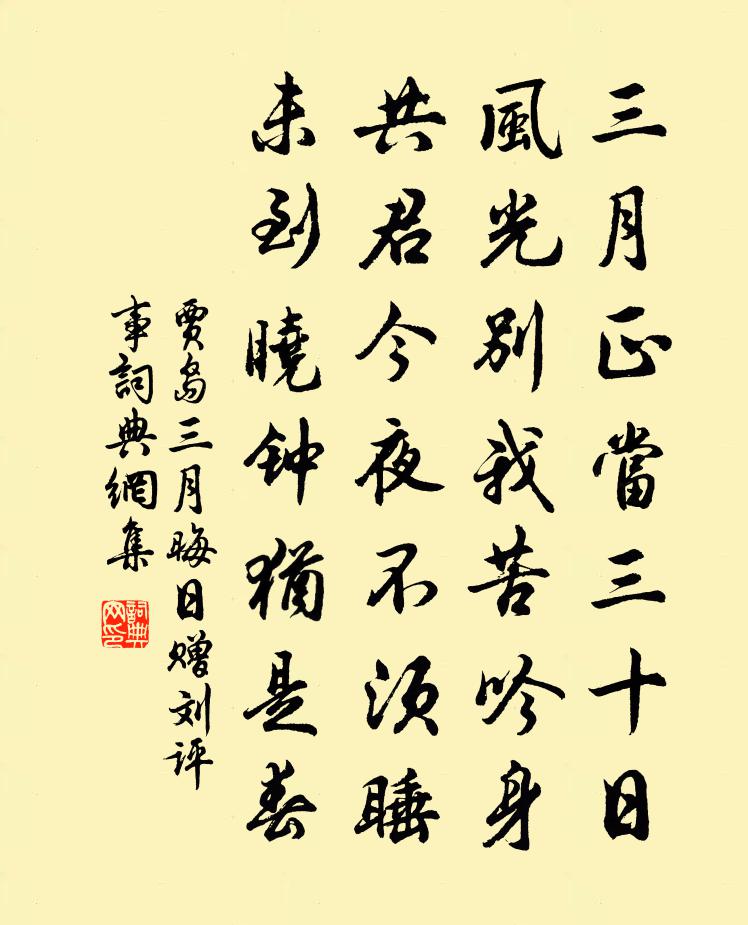 三月正當三十日
風光別我苦吟身
共君今夜不須睡
未到曉钟猶是春
賈島三月晦日赠刘评
事詞典網集
詞典网印